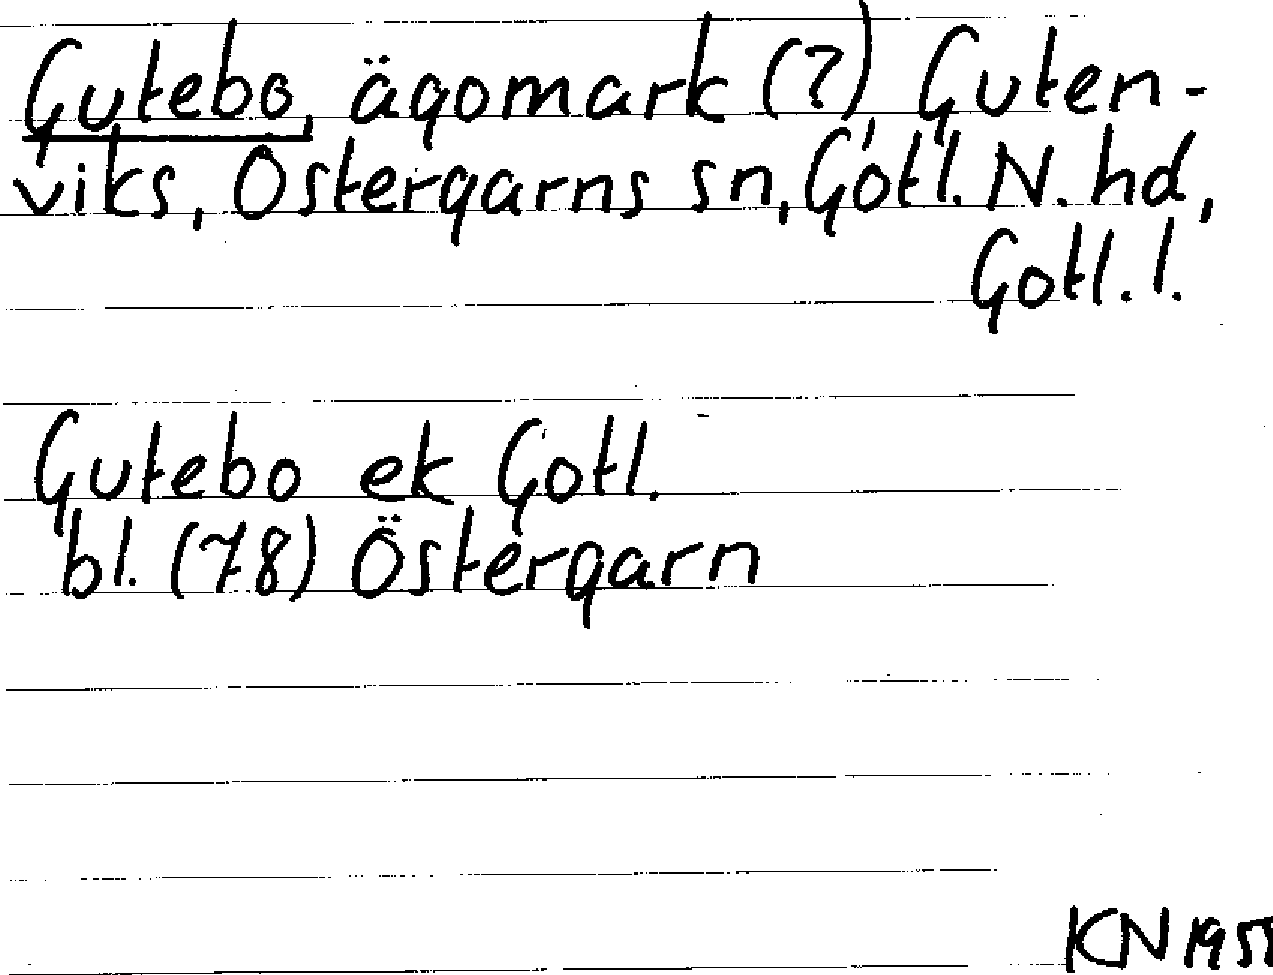 Gutebo, ägomark (?), Guten-
viks, Östergarns sn, Gotl. N. hd,
Gotl. l.
Gutebo ek Gotl.
bl. (78) Östergarn
KN 1955